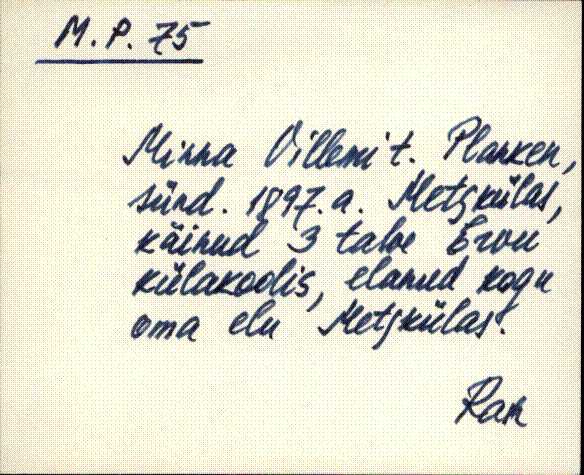 M. P. 75
Minna Villemi t. Planken,
sünd. 1897. a. Metskülas,
käinud 3 talve Eron
külakoolis, elanud kogu
oma elu Metskülas.
Ram